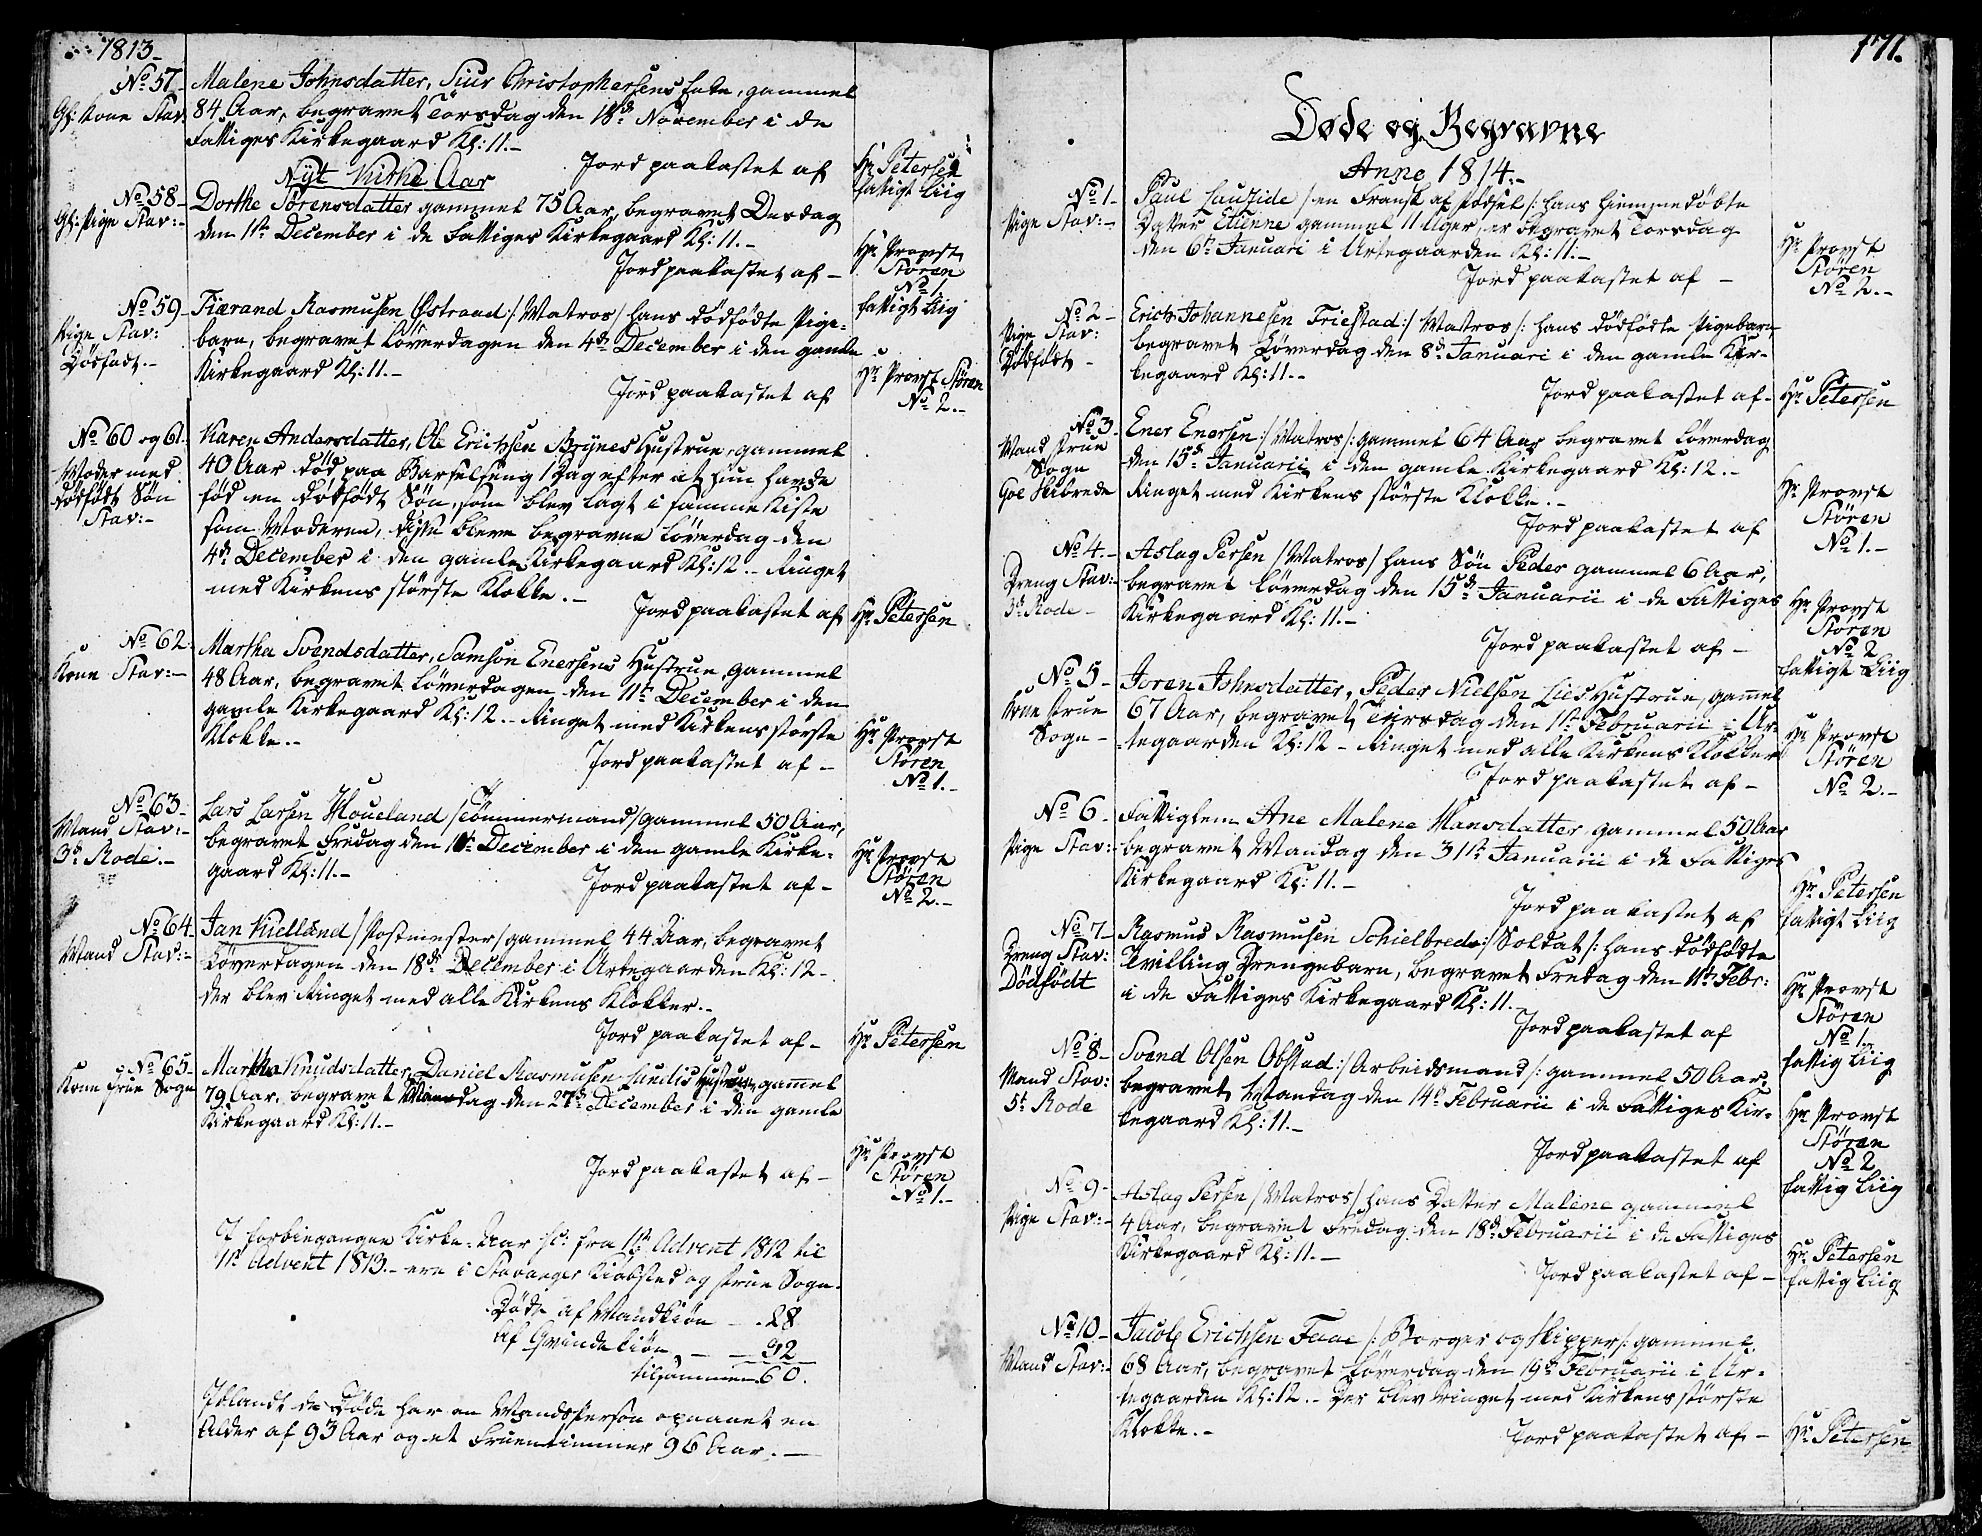 1813.
No 57.
Gl: Kone Stav.
Malene Johnsdatter, Siur Christophersens Enke, gammel
84 Aar, begravet Torsdag den 18de November i de
Fattiges Kirkegaard Kl: 11.-
Jord paakastet af
Hr Petersen
fattigt Liig
Nyt Kirke Aar
No 58-
Gl: Pige Stav:-
Dorthe Sørensdatter gammel 75 Aar, begravet
den 11te December i de Fattiges Kirkegaard Kl: 11.-
Jord paakastet af-
Hr Provst
Støren
No 1.
fattigt Liig
No 59-
Pige Stav:
Dödfødt.-
Tiærand Rasmusen Østraad /: Matros / hans dödfödte Pige-
barn, begravet Løverdagen den 4de December i den gamle
Kirkegaard Kl: 11.-
Jord paakastet af
Hr Provst Støren
No 2.-
No 60 og 61.
Moder med
dödfödt Søn
Stav:-
Karen Andersdatter, Ole Erichsen Brynes Hustrue, gammel
40 Aar död paa Barselseng 1 Dag efter at hun havde
föd en dödfödt Søn, som blev lagt i samme Kiste
som Moderen, disse bleve begravne Løverdag den
4de December i den gamle Kirkegaard Kl: 12.- Ringet
med Kirkens største Klokke.-
Jord paakastet af
Hr Petersen
No 62.
Kone Stav:-
Martha Svendsdatter, Samson Enersens Hustrue gammel
48 Aar, begravet Løverdagen den 11te December i den
gamle Kirkegaard Kl: 12.- Ringet med Kirkens største
Klokke.-
Jord paakastet af-
Hr Provst
Støren
No 1.-
No 63-
Mand Stav:-
3de Rode.-
Lars Larsen Houeland / Tömmermand / gammel 50 Aar,
begravet Fredag den December i den gamle Kirke-
gaard Kl: 11.-
Jord paakastet af-
Hr Provst
Støren
No 2.-
No 64-
Mand Stav:-
Jan Kielland / Postmester / gammel 44 Aar, begravet
Løverdagen den 18de December i Urtegaarden Kl: 12-
der blev Ringet med alle Kirkens Klokker.-
Jord paakastet af-
Hr Petersen
No 65-
Kone Frue Sogn
Martha Knudsdatter, Daniel Rasmusen Hustrue, gamel
79 Aar, begravet Mandag den 27de December i den gamle
Kirkegaard Kl: 11.-
Jord paakastet af-
Hr Provst
Støren
No 1.-
I forbigangen Kirke-Aar fra 1ste Advent 1812 til
1ste Advent 1813.- ere i Stavanger Kiøbsted og Frue Sogn
Døde af Mandkiøn - 28
af Qvindekiøn - - 32
tilsammen 60.
Iblandt de Døde har en Mandsperson opnaaet en
Alder af 93 Aar og et Fruentimmer 96 Aar.-
171.
Døde og Begravne
Anno 1814.-
No 1-
Pige Stav:-
Paul / en Fransk af Födsel /: hans hiemmedöbte
Datter Etienne gammel 11 Uger, er begravet Torsdag
den 6te Januari i Urtegaarden Kl: 11.-
Jord paakastet af -
Hr Provst
Støren
No 2.-
No 2-
Pige Stav:
Dödfödt -
Erich Johannesen Friestad /: Matros /: hans dödfödte Pigebarn
begravet Løverdag den 8de Januari i den gamle Kir-
kegaard Kl: 11.-
Jord paakastet af-
Hr Petersen
No 3-
Mand Frue
Sogn
Ener Enersen /: Matros /: gammel 64 Aar begravet Løverdag
den 15de Januarii i den gamle Kirkegaard Kl: 12.-
Ringet med Kirkens største Klokke.-
Jord paakastet af
Hr Provst
Støren
No 1.-
No 4-
Dreng Stav:-
3de Rode-
Aslag Persen / Matros / hans Søn Peder gammel 6 Aar,
begravet Løverdag den 15de Januarii i de Fattiges
Kirkegaard Kl: 11.-
Jord paakastet af-
Hr Provst
Støren
No 2
fattigt Liig
No 5-
Kone Frue
Sogn-
Joren Johnsdatter, Peder Nielsen Lies Hustrue, gamel
67 Aar, begravet Tiirsdag den 1ste Februarii i Ur-
tegaarden Kl: 12- Ringet med alle Kirkens Klokker
Jord paakastet af-
Hr Provst
Støren
No 2.-
No 6-
Pige Stav:-
Fattiglem Ane Malene Hansdatter gammel 50 Aar
begravet Mandag den 31te Januarii i de Fattiges
Kirkegaard Kl: 11.-
Jord paakastet af
Hr Petersen
fattigt Liig
No 7-
Dreng Stav:
Dödfödt
Rasmus Rasmusen Schielbred /: Soldat /: hans dödfödte
Tvilling Drengebarn, begravet Fredag den 11te Febr:
i de Fattiges Kirkegaard Kl: 11.-
Jord paakastet af
Hr Provst
Støren
No 1-
fattig Liig
No 8-
Mand Stav:
5te Rode
Svend Olsen Obstad /: Arbeidsmand /: gammel 50 Aar,
begravet Mandag den 14de Februarii i de Fattiges Kir-
kegaard Kl: 11.-
Jord paakastet af
Hr Provst
Støren
No 2
fattig Liig
No 9-
Pige Stav:-
Aslag Persen / Matros / hans Datter Malene gammel
4 Aar, begravet Fredag den 18de Februarii i de Fattiges
Kirkegaard Kl: 11.-
Jord paakastet af-
Hr Petersen
fattig Liig
No 10-
Mand Stav:-
Jacob Erichsen Faae /: Borger og Skipper /: gammel
68 Aar, begravet Løverdag den 19de Februarii i Ur-
tegaarden Kl: 12.- Der blev Ringet med Kirkens største
Klokke.-
Jord paakastet af-
Hr Petersen